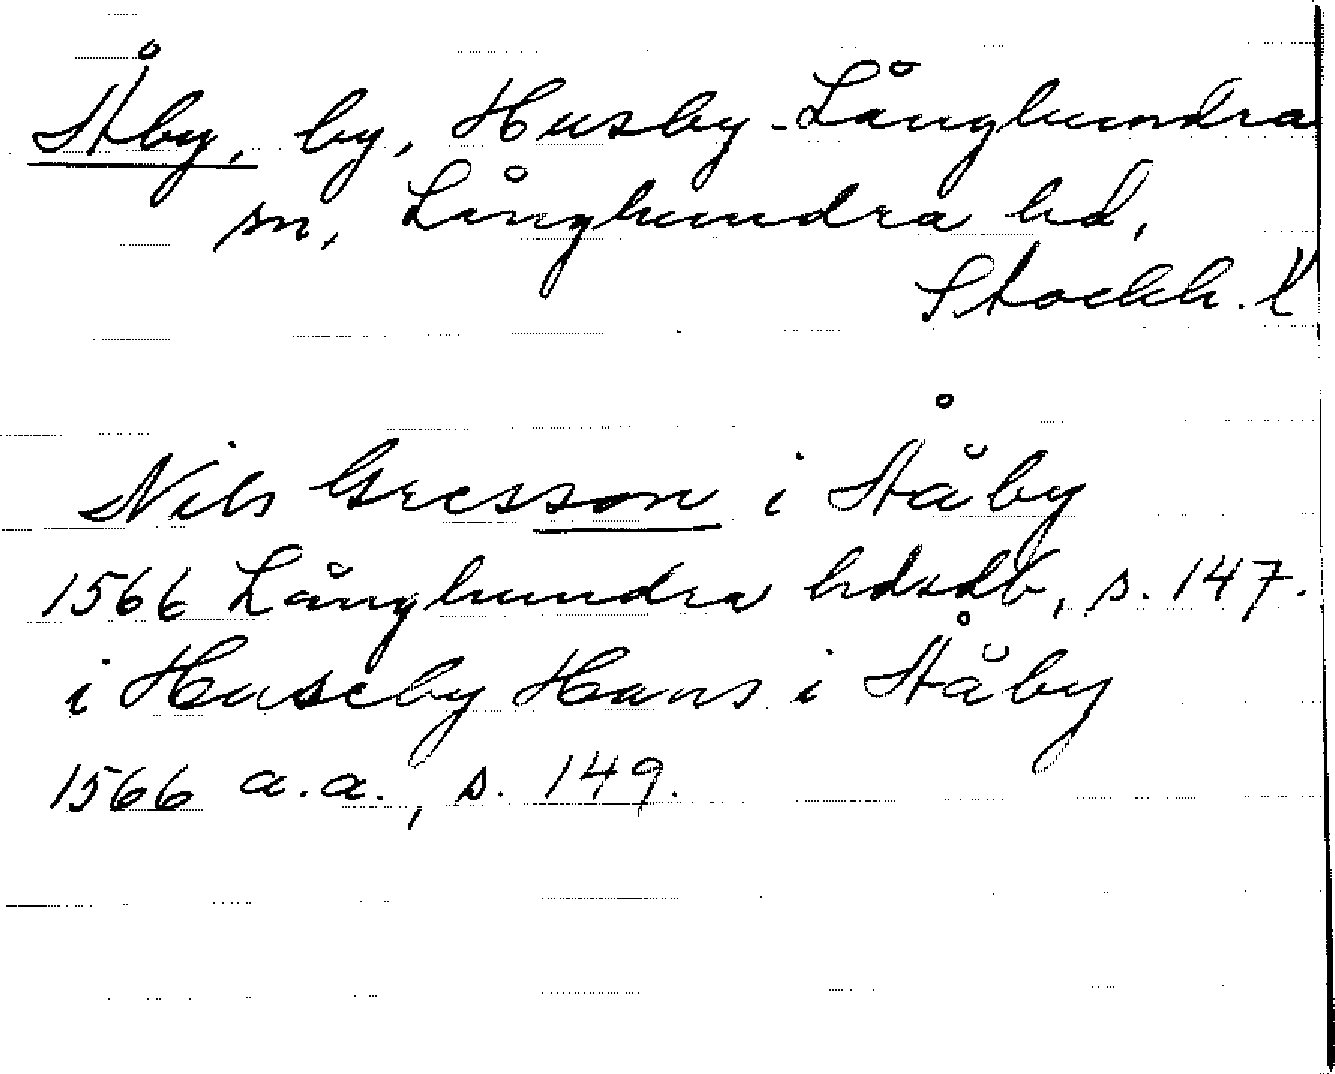 Åby, by, Husby-Långhundra
sn, Långhundra hd,
Stockh. l
Nils Gresson i Åäby
1566 Långhundra hdsdb, s. 147.
i Huseby Hans i Åäby
1566 a.a., s. 149.